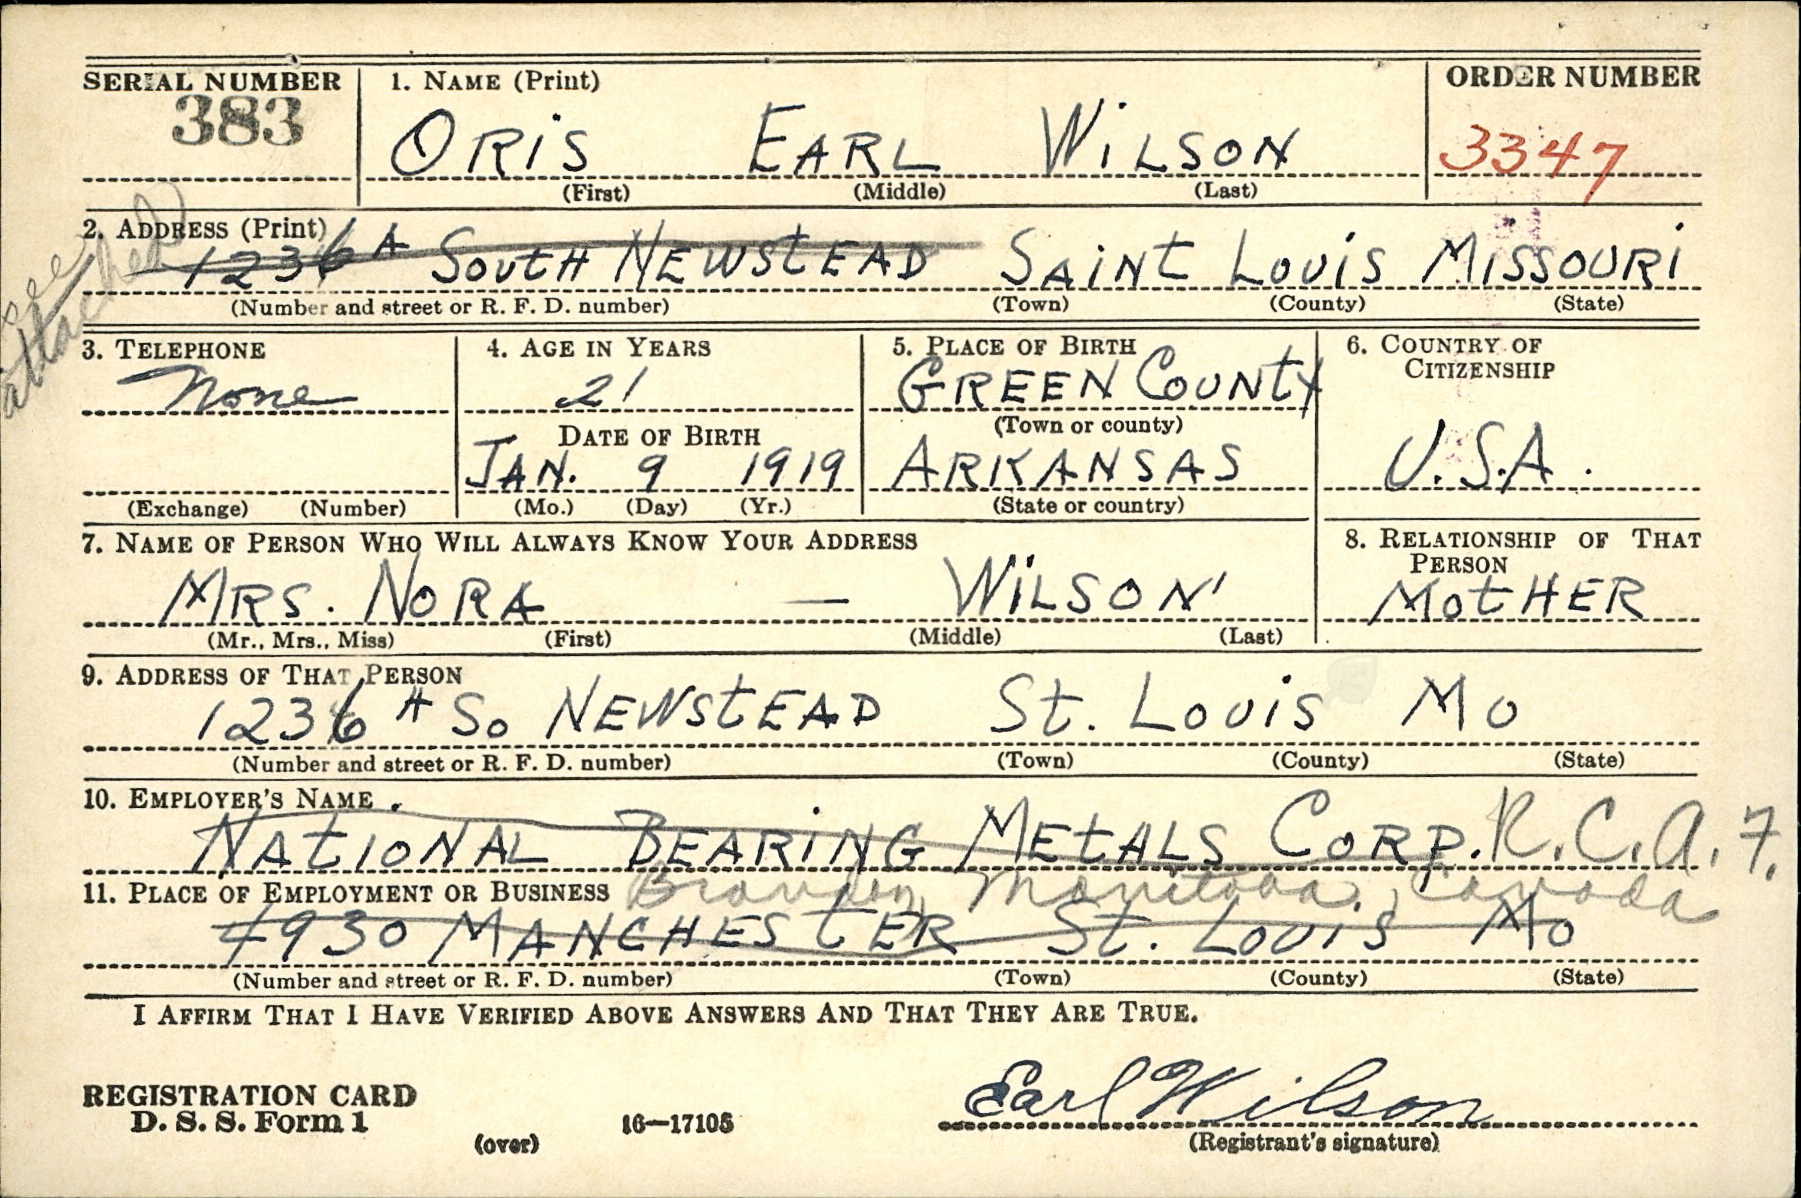 SERIAL NUMBER 1. NAME (Print) ORDER NUMBER
383 ORIS EARL WILSON 3347
(First) (Middle) (Last)
see attached
2. ADDRESS (Print)
1236A SOUTH NEWSTEAD SAINT LOUIS MISSOURI
(Number and street or R. F. D. number) (Town) (County) (State)
3. TELEPHONE 4. AGE IN YEARS 5. PLACE OF BIRTH 6. COUNTRY OF CITIZENSHIP
None 21 GREEN COUNTY
(Town or county)
DATE OF BIRTH
JAN. 9 1919 ARKANSAS U.S.A.
(Exchange) (Number) (Mo.) (Day) (Yr.) (State or country)
7. NAME OF PERSON WHO WILL ALWAYS KNOW YOUR ADDRESS 8. RELATIONSHIP OF THAT PERSON
MRS. NORA — WILSON MOTHER
(Mr., Mrs., Miss) (First) (Middle) (Last)
9. ADDRESS OF THAT PERSON
1236 A So NEWSTEAD ST. LOUIS MO
(Number and street or R. F. D. number) (Town) (County) (State)
10. EMPLOYER'S NAME
NATIONAL BEARING METALS CORP. R.C.A.F.
11. PLACE OF EMPLOYMENT OR BUSINESS Brandon, Manitoba, Canada
4930 MANCHESTER ST. LOUIS MO
(Number and street or R. F. D. number) (Town) (County) (State)
I AFFIRM THAT I HAVE VERIFIED ABOVE ANSWERS AND THAT THEY ARE TRUE.
Earl Wilson
REGISTRATION CARD
D. S. S. Form 1
(over) 16—17105 (Registrant's signature)